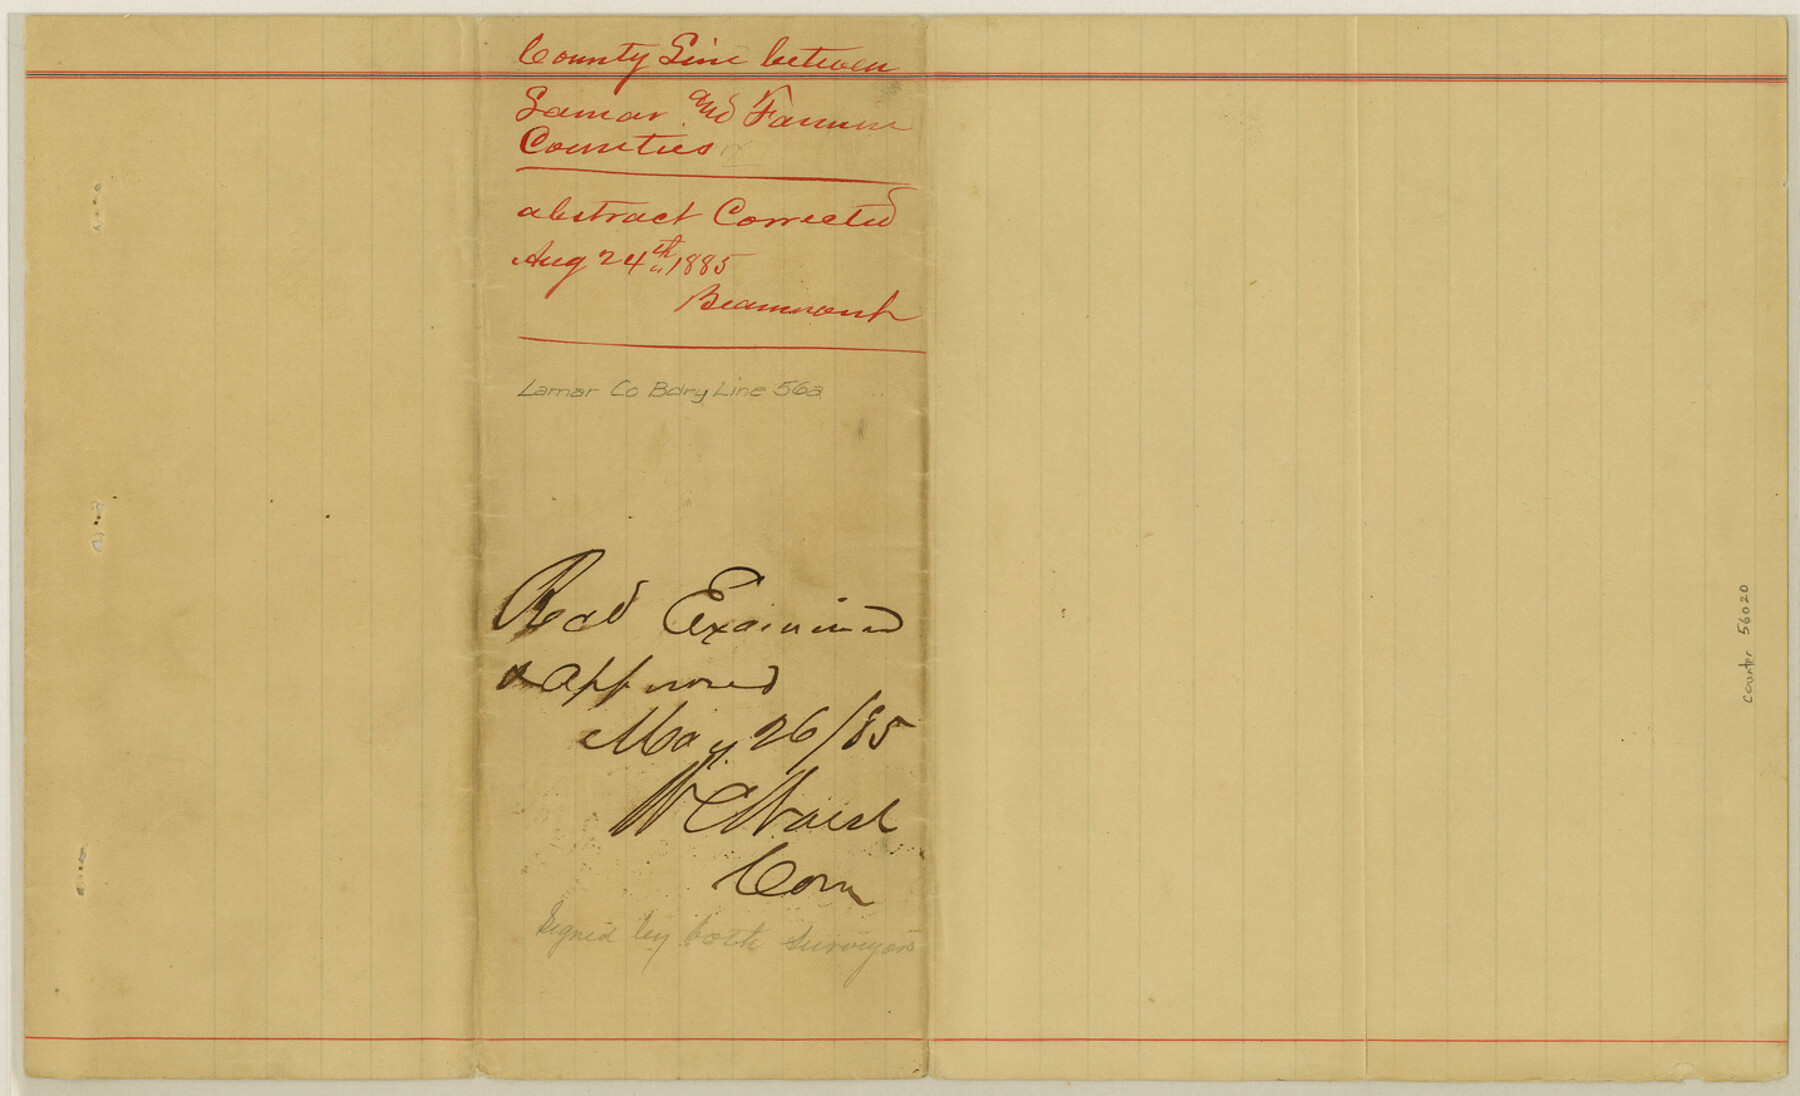 County Line between
Lamar and Fannin
Counties
abstract Corrected
Aug 24th 1885
Beaumont
Lamar Co Bdry Line 56a
Read Examined
& approved
May 26/85
W C Walsh
Com
Signed by both surveyors
counter 56020